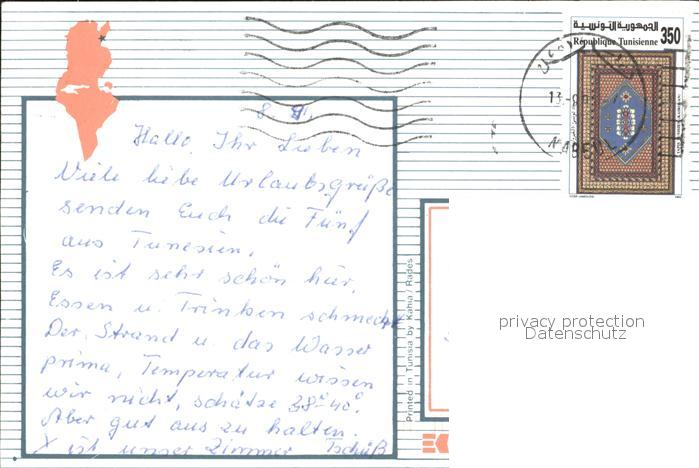 الجمهورية التونسية
République Tunisienne 350
13-8
NABEUL
8. 8.
Hallo, Ihr Lieben
Viele liebe Urlaubsgrüße
senden Euch die Fünf
aus Tunesien.
Es ist sehr schön hier,
Essen u. Trinken schmeckt
Der Strand u. das Wasser
prima, Temperatur wissen
wir nicht, schätze 38°-40°.
Aber gut aus zu halten.
X ist unser Zimmer Tschüß
Printed in Tunisia by Kahia / Rades
privacy protection
Datenschutz